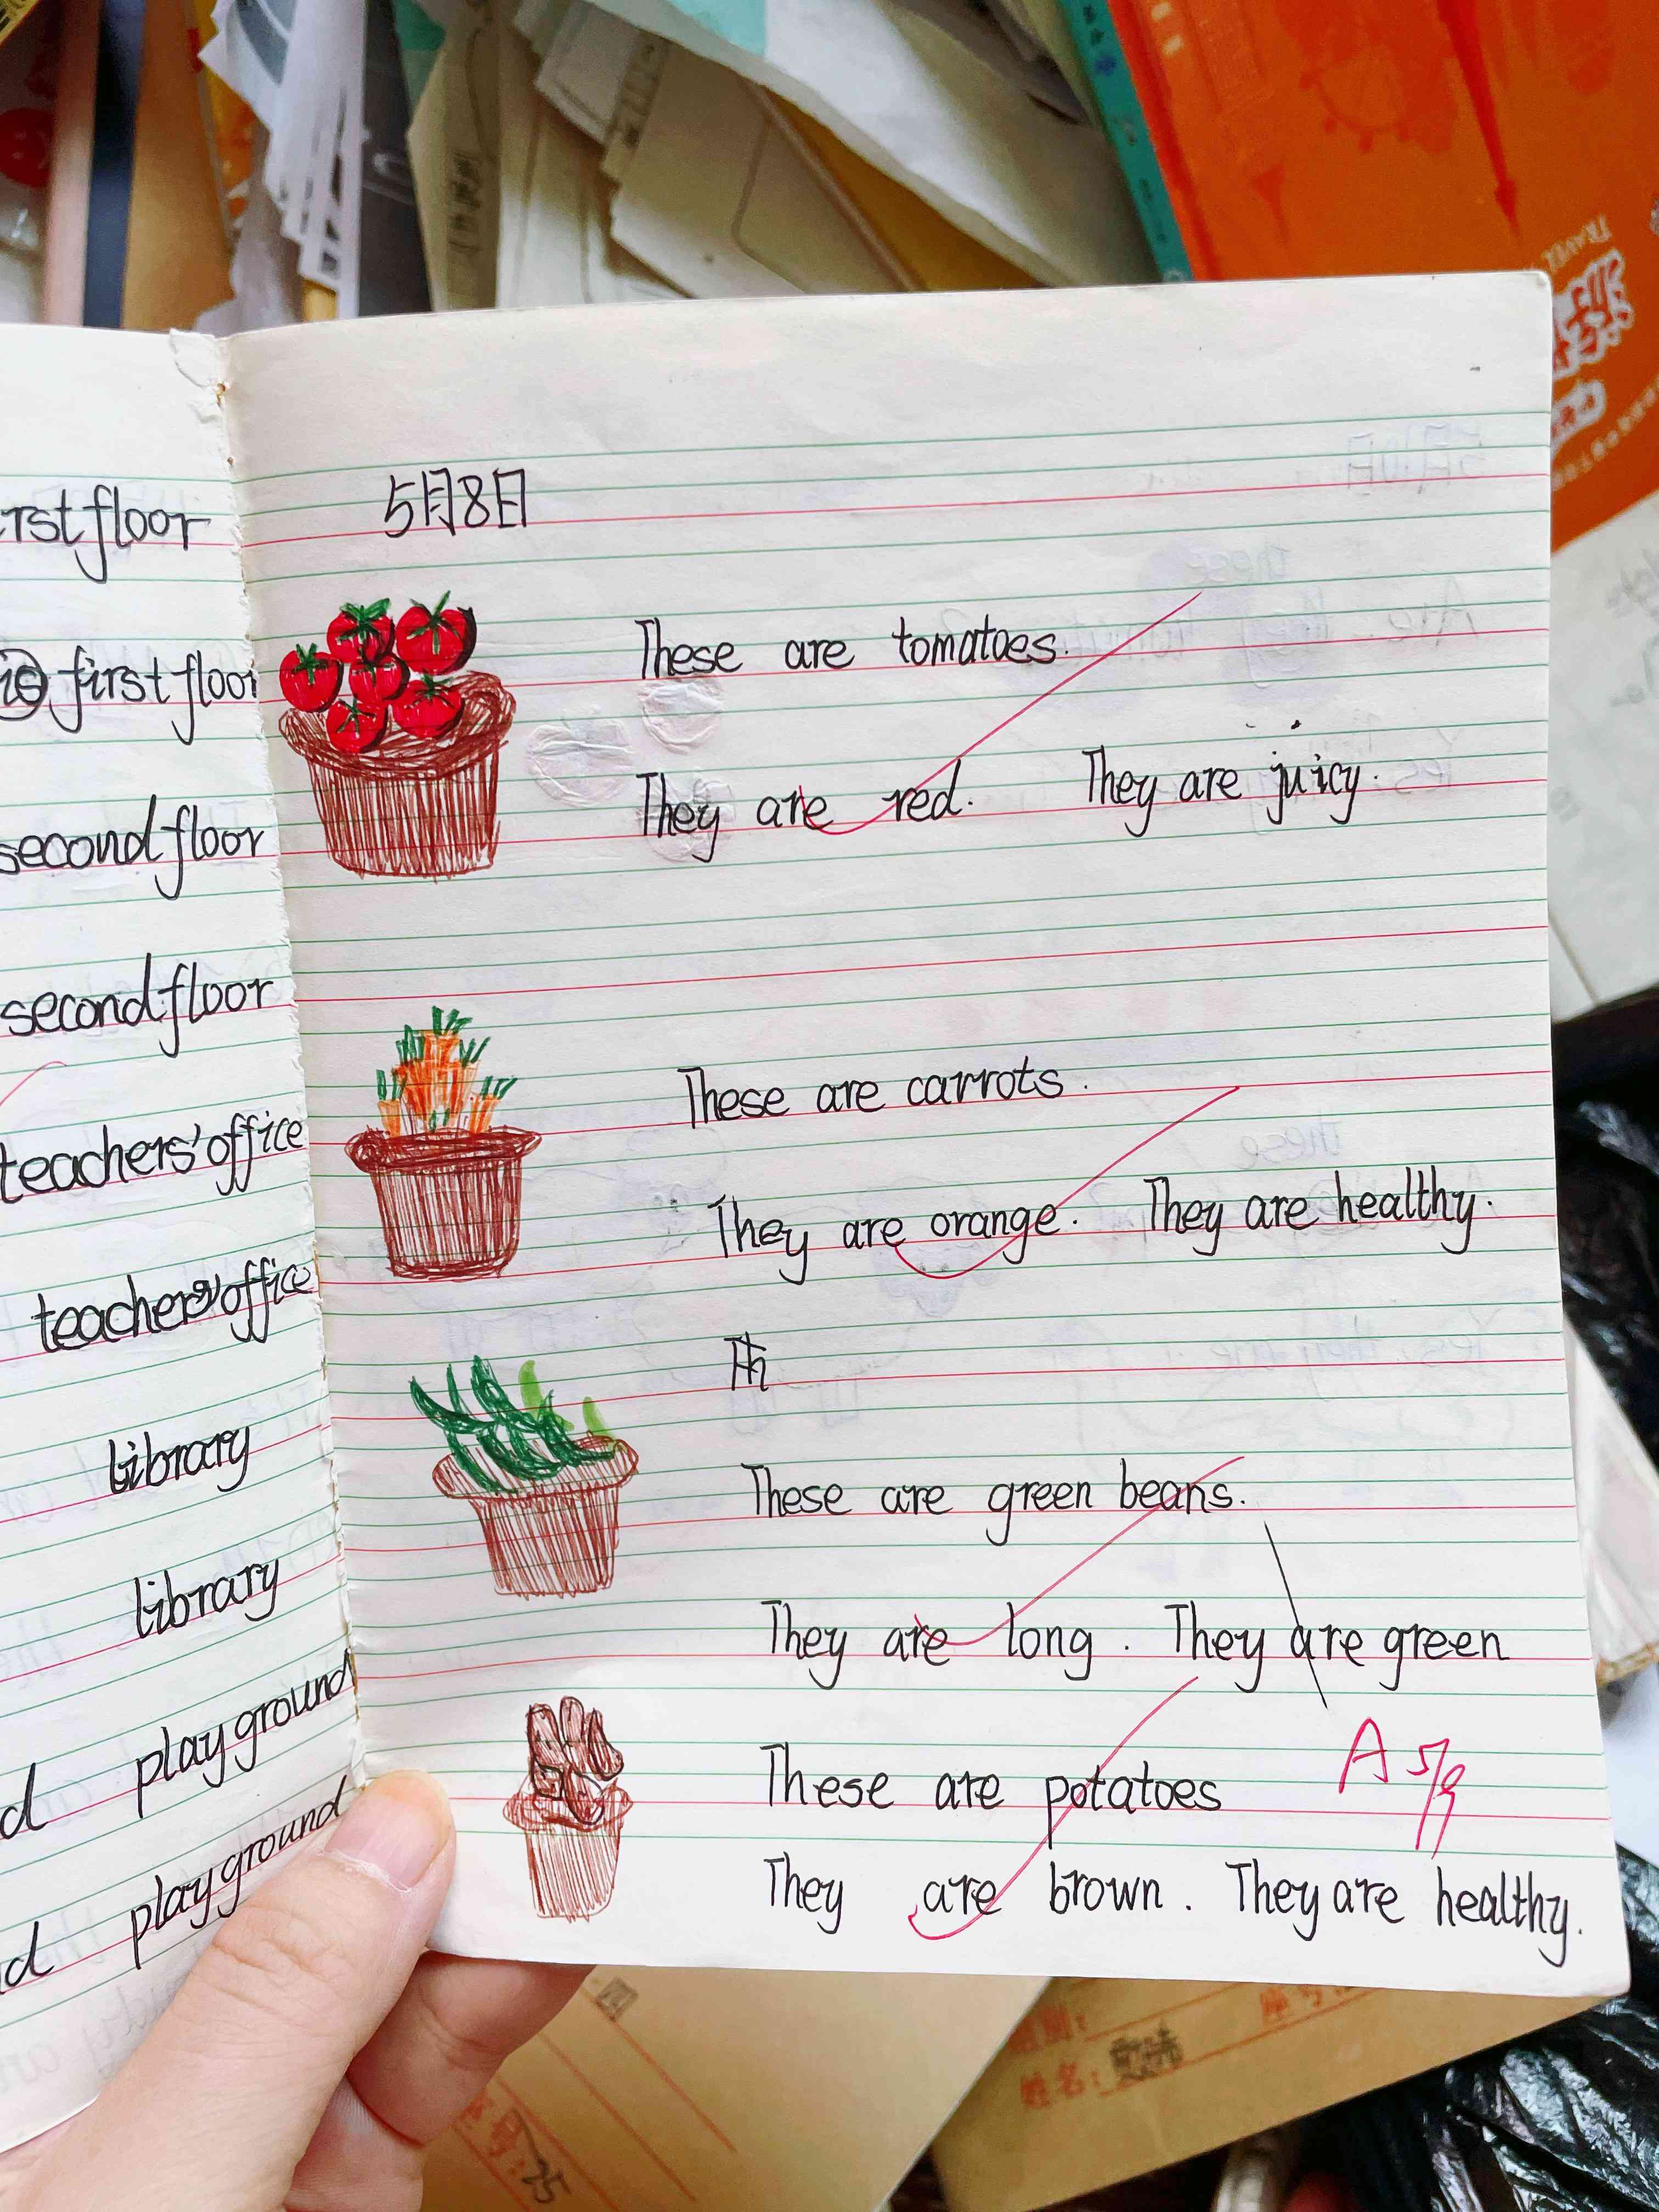 rst floor
first floor
second floor
second floor
teachers' office
teachers' office
library
library
d playground
d playground
5月8日
These are tomatoes.
They are red. They are juicy.
These are carrots.
They are orange. They are healthy.
Th
These are green beans.
They are long. They are green
These are potatoes
A 5/9
They are brown. They are healthy.
TRAVEL
姓名:
座号
号:25